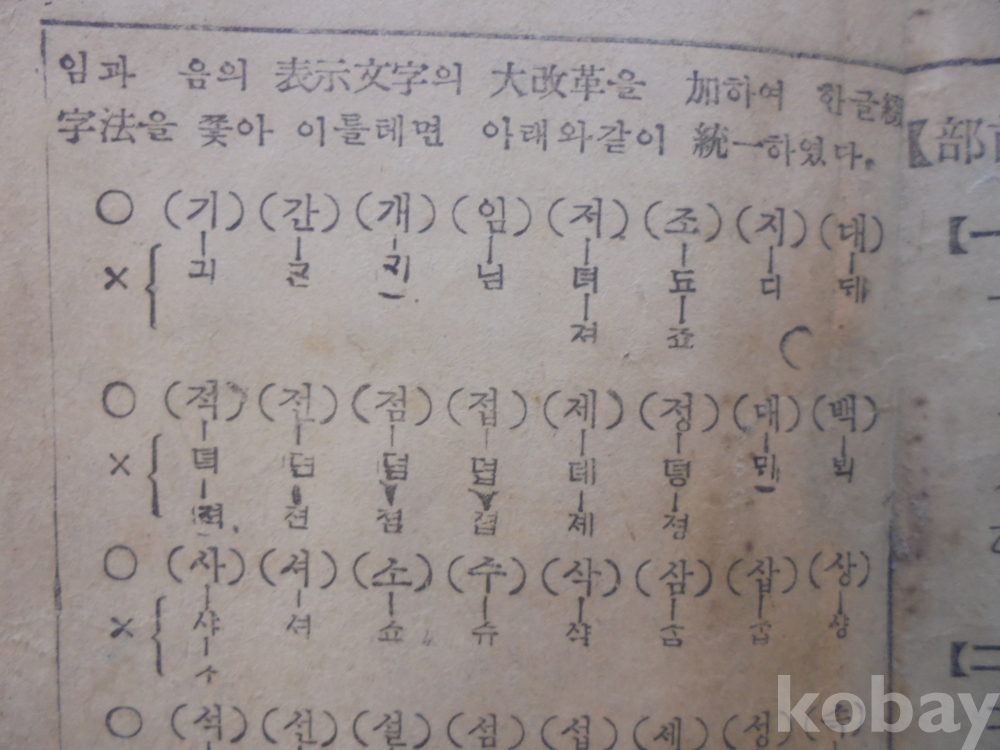 임과 음의 表示文字의 大改革을 加하여 한글綴
字法을 쫓아 이를테면 아래와같이 統一하였다.
【部
○ (기) (간) (개) (임) (저) (조) (지) (대)
【一
× { 긔 님 뎌 됴 디
져 죠
○ (적) (전) (점) (접) (제) (정) (대) (백)
× { 뎍 뎐 뎜 뎝 뎨 뎡
젹 젼 졈 졉 졔 졍
○ (사) (서) (소) (주) (삭) (삼) (삽) (상)
× { 샤 셔 쇼 쥬 샥 샴 샵 샹
【二
○ (석) (선) (설) (섬) (섭) (세) (성)
kobay